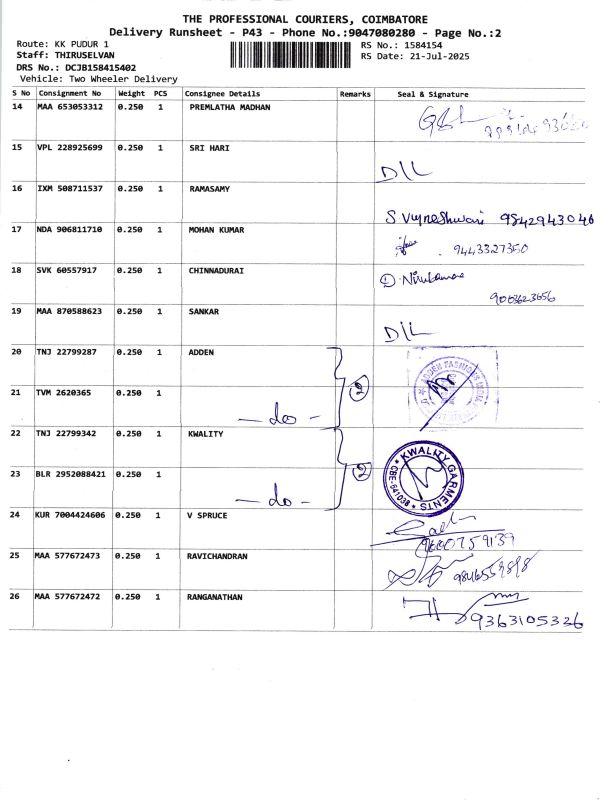 THE PROFESSIONAL COURIERS, COIMBATORE
Delivery Runsheet - P43 - Phone No.:9047080280 - Page No.:2
Route: KK PUDUR 1
Staff: THIRUSELVAN
DRS No.: DCJB158415402
Vehicle: Two Wheeler Delivery
RS No.: 1584154
RS Date: 21-Jul-2025
S No Consignment No Weight PCS Consignee Details Remarks Seal & Signature
14 MAA 653053312 0.250 1 PREMLATHA MADHAN
15 VPL 228925699 0.250 1 SRI HARI D/L
16 IXM 508711537 0.250 1 RAMASAMY S Vigneshwari 9842943046
17 NDA 906811710 0.250 1 MOHAN KUMAR 9443327350
18 SVK 60557917 0.250 1 CHINNADURAI 9003623656
19 MAA 870588623 0.250 1 SANKAR D/L
20 TNJ 22799287 0.250 1 ADDEN 2 ADDEN FASHIONS INDIA
21 TVM 2620365 0.250 1 - do -
22 TNJ 22799342 0.250 1 KWALITY 2 KWALITY GARMENTS CBE-641038
23 BLR 2952088421 0.250 1 - do -
24 KUR 7004424606 0.250 1 V SPRUCE 9600759139
25 MAA 577672473 0.250 1 RAVICHANDRAN
26 MAA 577672472 0.250 1 RANGANATHAN 9363105336